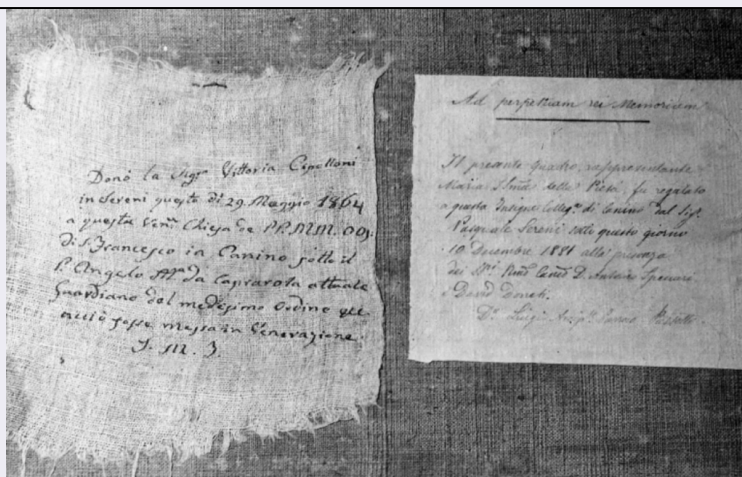 Donò la Sigrª Vittoria Cepolloni
in Sereni questo dì 29. Maggio 1864
a questa Venᵉ Chiesa de PP. MM. OO.
di S. Francesco in Canino sotto il
P. Angelo Mª da Caprarola attuale
Guardiano del medesimo Ordine
acciò fosse messa in Venerazione.
Ad perpetuam rei Memoriam
Il presente quadro, rappresentante
Maria SSma della Pietà, fu regalato
a questa Insigne Collegª di Canino dal Sigr.
Pasquale Sereni questo giorno
10 Decembre 1881 alla presenza
dei Canci D. Antonio
e David
D. Luigi